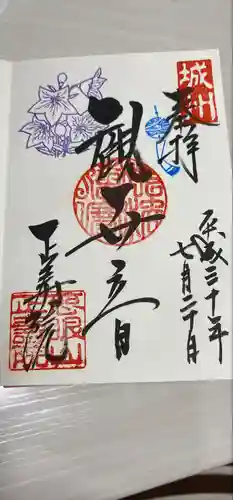 城州
奉拝
平成三十年
七月二十日
観世音
正寿院